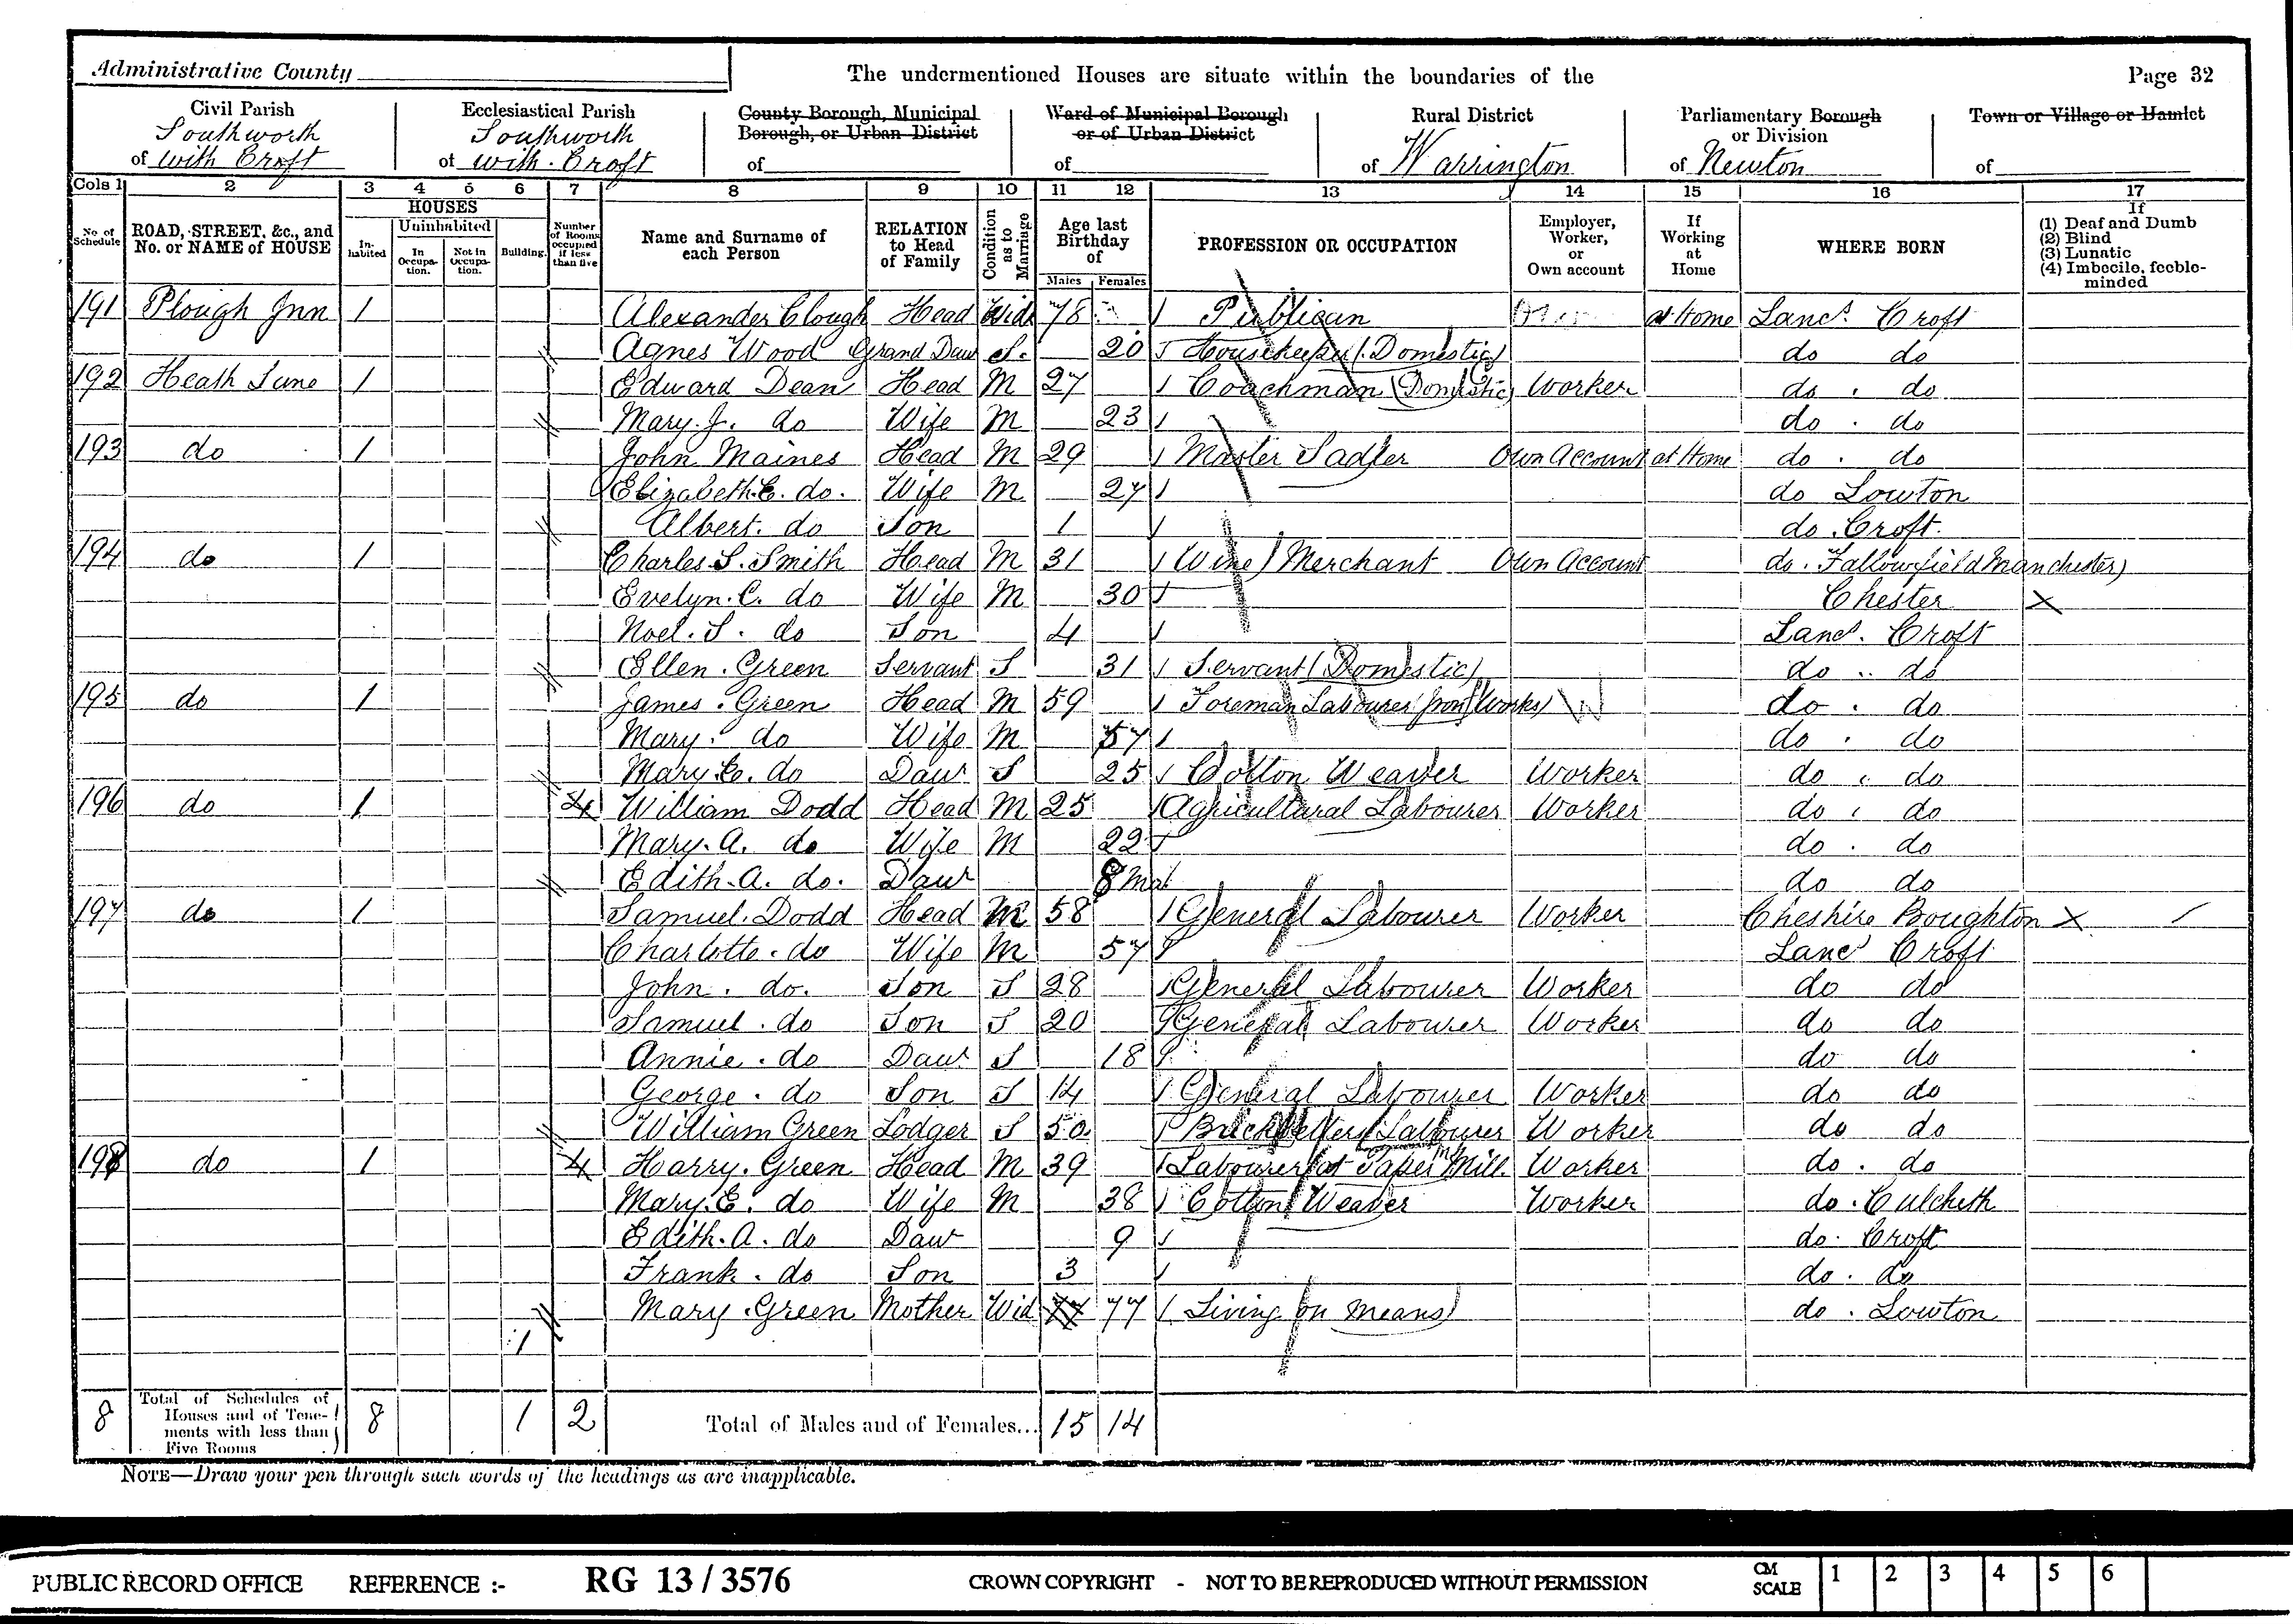 Administrative County
The undermentioned Houses are situate within the boundaries of the
Page 32
Civil Parish
of Southworth with Croft
Ecclesiastical Parish
of Southworth with Croft
County Borough, Municipal Borough, or Urban District
of
Ward of Municipal Borough or of Urban District
of
Rural District
of Warrington
Parliamentary Borough or Division
of Newton
Town or Village or Hamlet
of
Cols 1 2 3 4 5 6 7 8 9 10 11 12 13 14 15 16 17
No of Schedule
ROAD, STREET, &c., and No. or NAME of HOUSE
HOUSES
In-habited
Uninhabited
In Occupa-tion.
Not in Occupa-tion.
Building.
Number of Rooms occupied if less than five
Name and Surname of each Person
RELATION to Head of Family
Condition as to Marriage
Age last Birthday of
Males Females
PROFESSION OR OCCUPATION
Employer, Worker, or Own account
If Working at Home
WHERE BORN
If
(1) Deaf and Dumb
(2) Blind
(3) Lunatic
(4) Imbecile, feeble-minded
191 Plough Inn 1 Alexander Clough Head Wid 78 Publican at Home Lancs. Croft
Agnes Wood Grand Daur S. 20 Housekeeper (Domestic) do do
192 Heath Lane 1 Edward Dean Head M 27 Coachman (Domestic) Worker do . do
Mary. J. do Wife M 23 do . do
193 do 1 John Maines Head M 29 Master Sadler Own Account at Home do . do
Elizabeth. E. do. Wife M 27 do Lowton
Albert. do Son 1 do . Croft.
194 do 1 Charles S. Smith Head M 31 (Wine) Merchant Own Account do . Fallowfield Manchester)
Evelyn. C. do Wife M 30 Chester X
Noel. S. do Son 4 Lancs. Croft
Ellen. Green Servant S 31 Servant (Domestic) do .. do
195 do 1 James. Green Head M 59 Foreman Labourer Iron (Works) W do . do
Mary. do Wife M 57 do . do
Mary. E. do Daur S 25 Cotton Weaver Worker do . do
196 do 1 4 William Dodd Head M 25 Agricultural Labourer Worker do . do
Mary. A. do Wife M 22 do . do
Edith. A. do. Daur 8 mo do do
197 do 1 Samuel. Dodd Head M 58 General Labourer Worker Cheshire Boughton X
Charlotte. do Wife M 57 Lancs Croft
John. do. Son S 28 General Labourer Worker do do
Samuel. do Son S 20 General Labourer Worker do do
Annie. do Daur S 18 do do
George. do Son S 14 General Labourer Worker do do
William Green Lodger S 50 Bricksetters Labourer Worker do do
198 do 1 4 Harry. Green Head M 39 Labourer at Paper Mill. Worker do . do
Mary. E. do Wife M 38 Cotton Weaver Worker do . Culcheth
Edith. A. do Daur 9 do . Croft
Frank. do Son 3 do . do
Mary. Green Mother Wid 77 77 Living on means do . Lowton
1
8 Total of Schedules of Houses and of Tene-ments with less than Five Rooms 8 1 2 Total of Males and of Females... 15 14
NOTE—Draw your pen through such words of the headings as are inapplicable.
PUBLIC RECORD OFFICE REFERENCE :- RG 13 / 3576 CROWN COPYRIGHT - NOT TO BE REPRODUCED WITHOUT PERMISSION CM SCALE 1 2 3 4 5 6